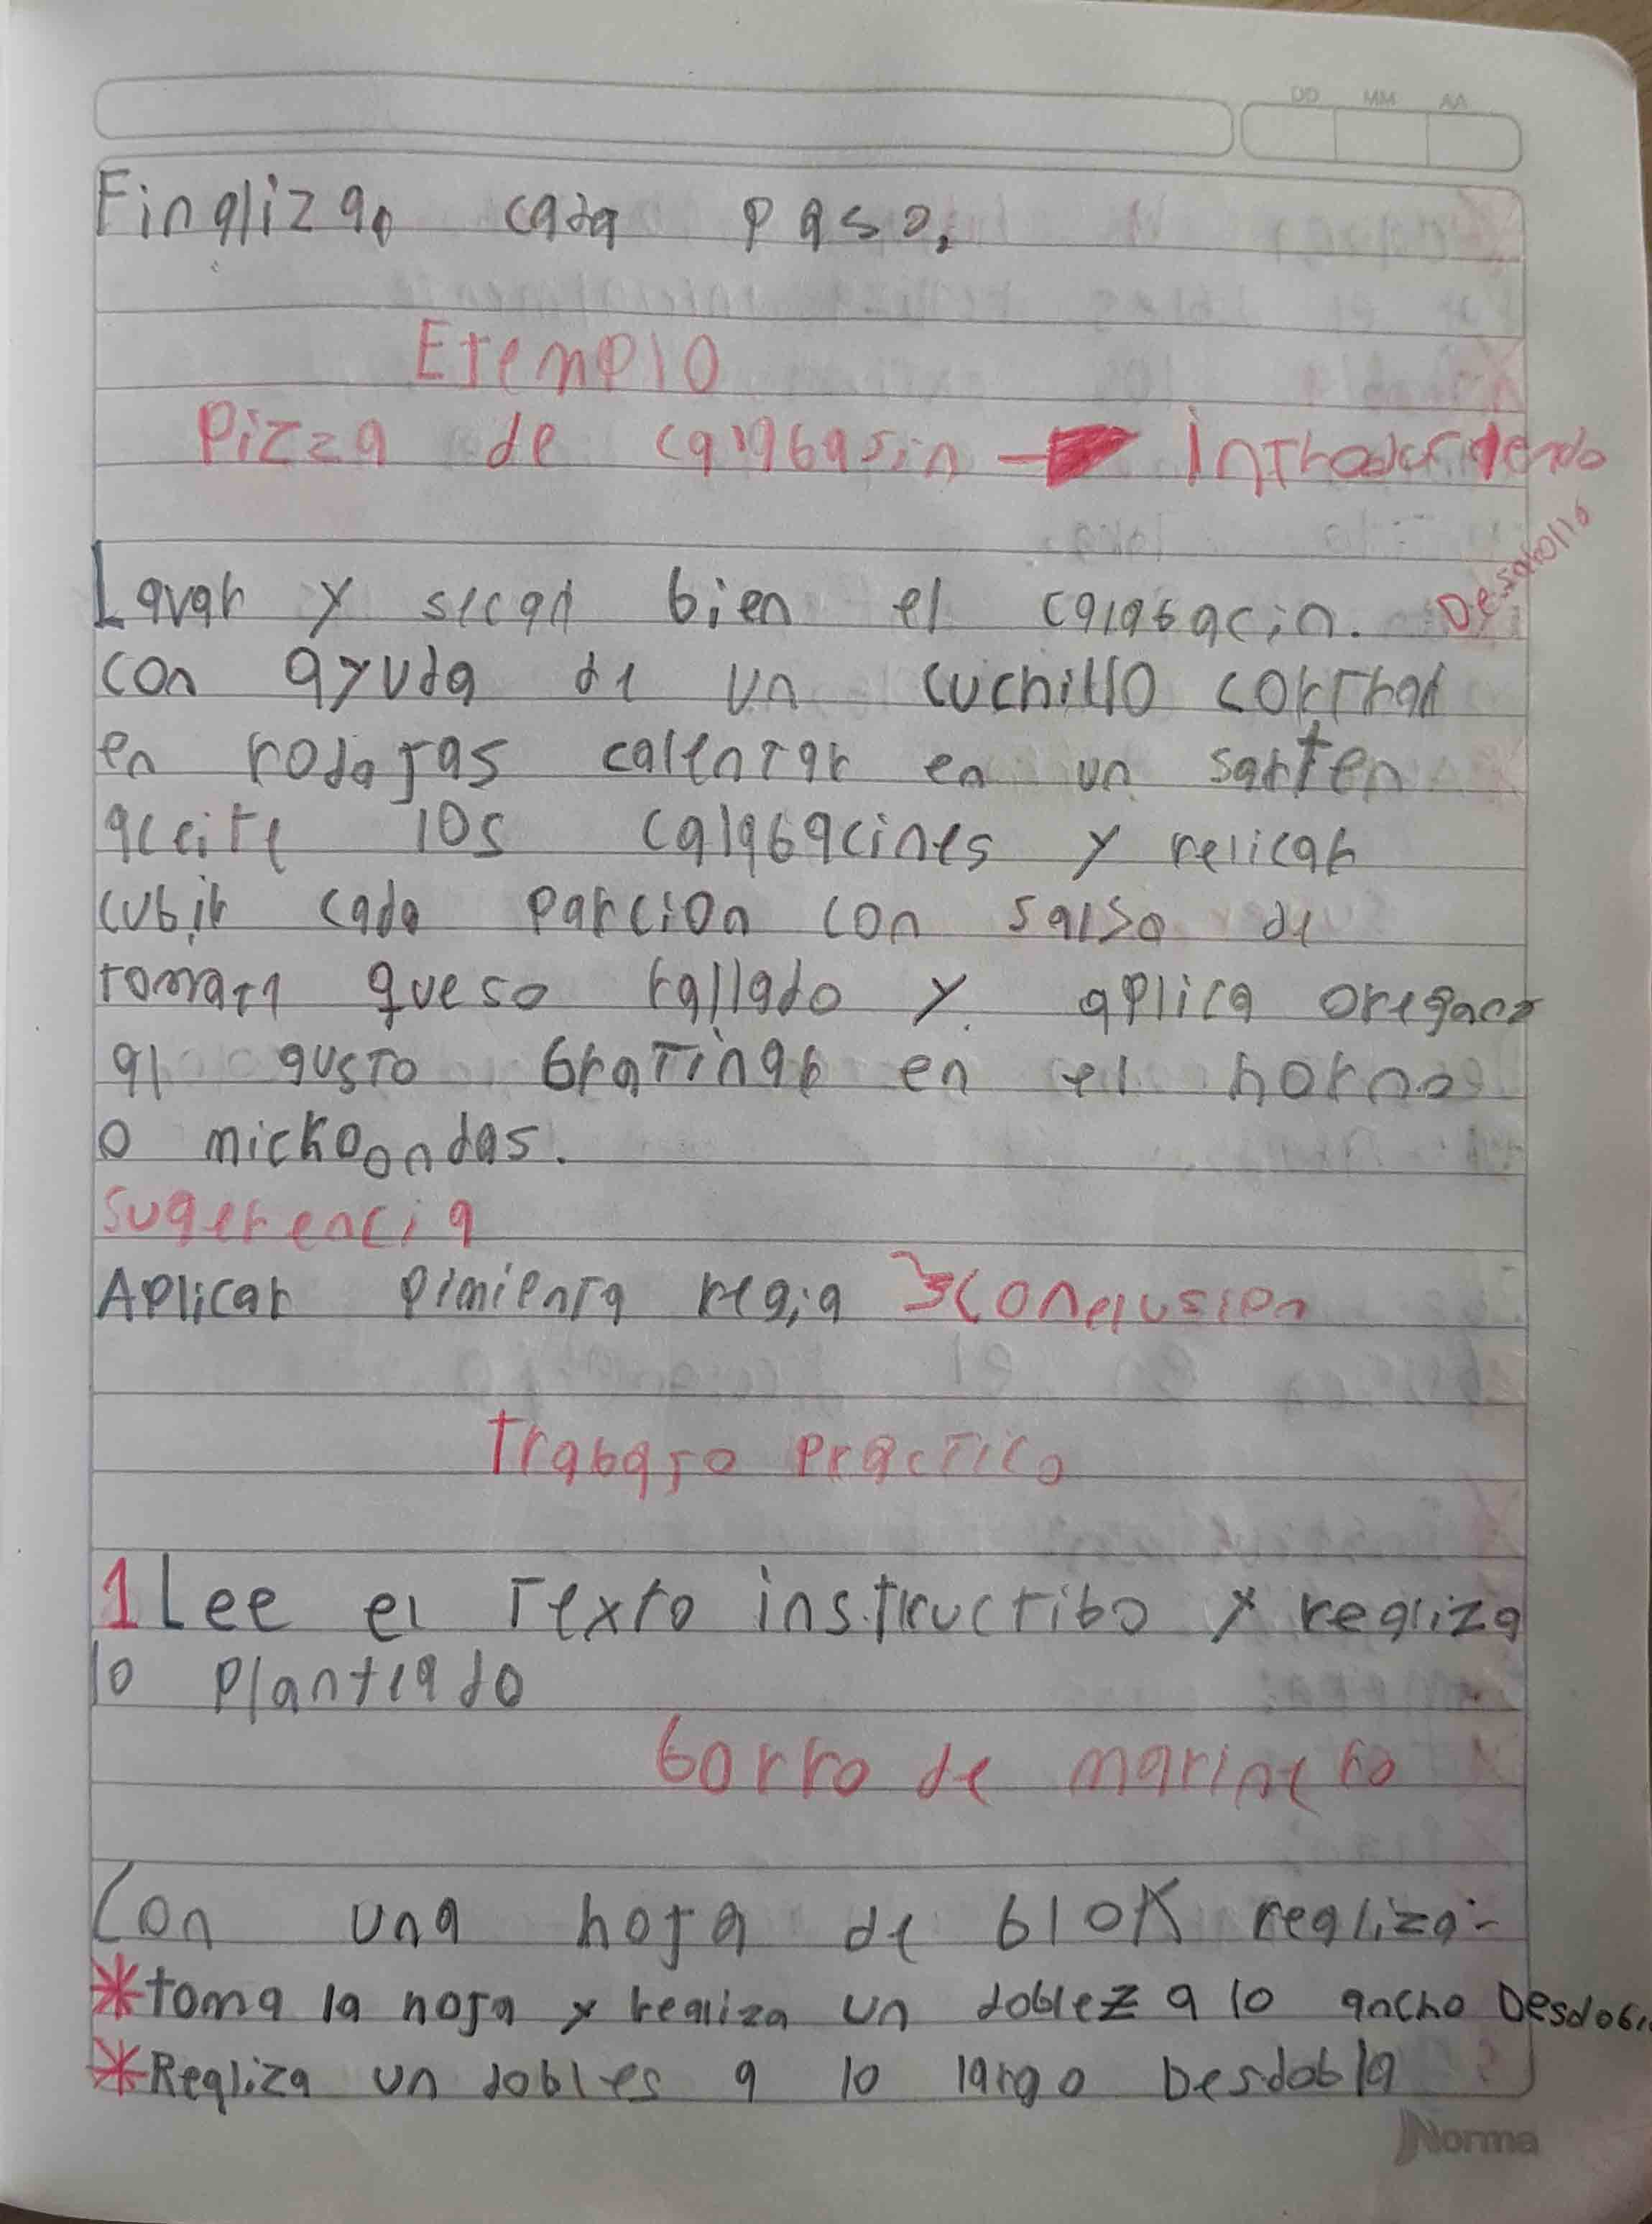 DD MM AA
Finaliza cada paso.
Ejemplo
Pizza de calabasin → Introduciendo
Desarollo
Lavar y secar bien el calabacin.
con ayuda de un cuchillo cortrar
en rodajas calentar en un sarten
aceite los calabacines y relicar
cubir cada parcion con salsa de
tomate queso rallado y aplica oregano
al gusto Gratinar en el horno
o mickoondas.
Sugerencia
Aplicar pimienta regia Conclusion
Trabajo practico
1 Lee el texto instructibo y realiza
lo plantiado
Gorro de marinero
Con una hoja de blok realiza:-
*toma la hoja y realiza un doblez a lo ancho Desdobl
*Realiza un dobles a lo largo Desdobla
Norma